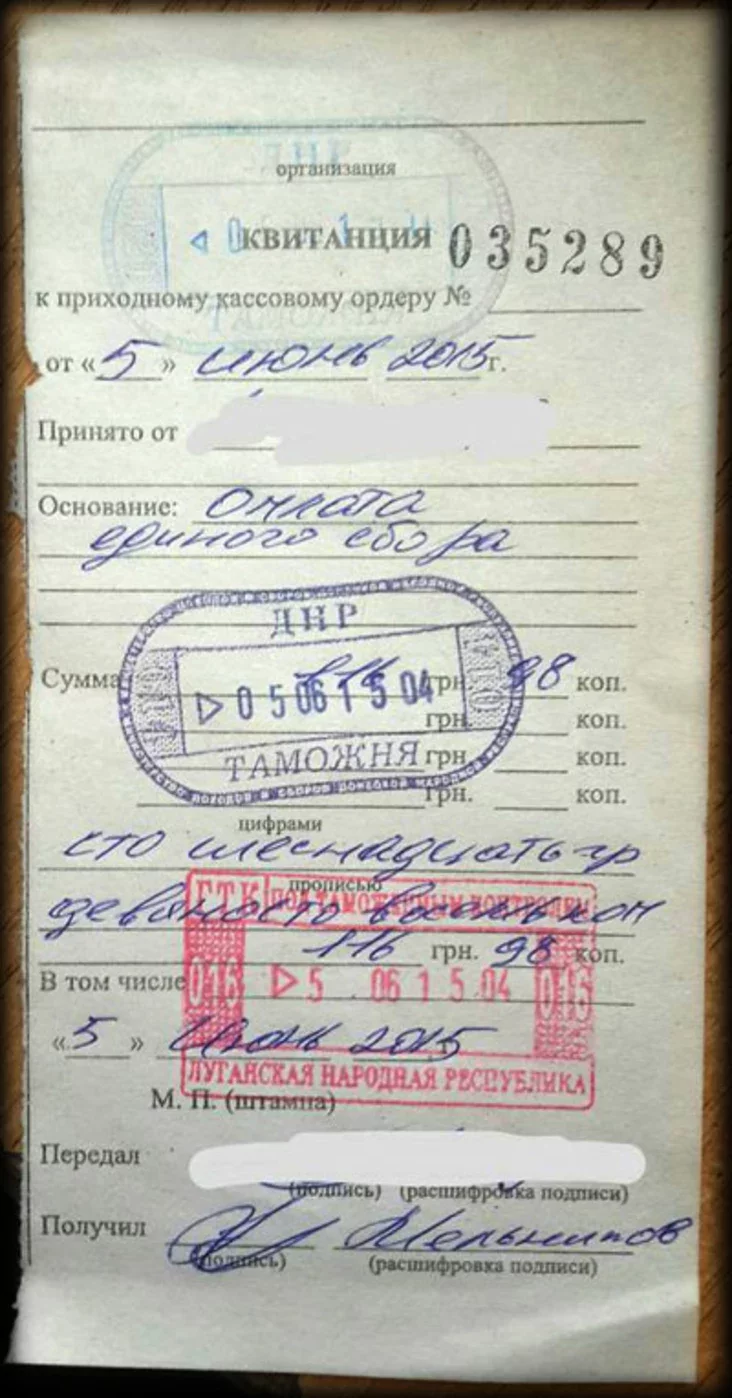 ДНР
организация
КВИТАНЦИЯ 035289
к приходному кассовому ордеру №
ТАМОЖНЯ
от «5» июнь 2015г.
Принято от
Основание: Оплата
единого сбора
ДНР
Сумма 116 грн. 98 коп.
050615 04
грн. коп.
ТАМОЖНЯ грн. коп.
грн. коп.
цифрами
сто шеснадцать гр
прописью
ГТК ПОД ТАМОЖЕННЫМ КОНТРОЛЕМ
девяносто восемь коп
116 грн. 98 коп.
В том числе
016 5 . 06 15 04 016
«5» Июнь 2015
ЛУГАНСКАЯ НАРОДНАЯ РЕСПУБЛИКА
М. П. (штампа)
Передал
(подпись) (расшифровка подписи)
Получил Мельников
(подпись) (расшифровка подписи)